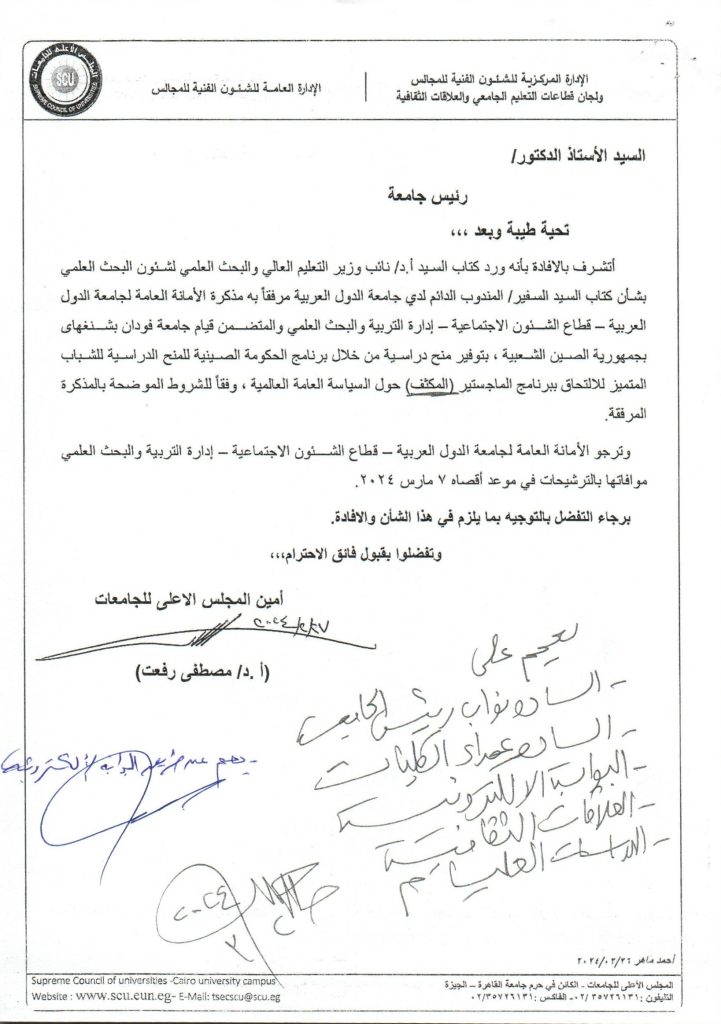 المجلس الأعلى للجامعات
SCU
SUPREME COUNCIL OF UNIVERSITIES
الإدارة المركزية للشئون الفنية للمجالس
ولجان قطاعات التعليم الجامعي والعلاقات الثقافية
الإدارة العامة للشئون الفنية للمجالس
السيد الأستاذ الدكتور/
رئيس جامعة
تحية طيبة وبعد ،،،
أتشرف بالافادة بأنه ورد كتاب السيد أ.د/ نائب وزير التعليم العالي والبحث العلمي لشئون البحث العلمي
بشأن كتاب السيد السفير/ المندوب الدائم لدي جامعة الدول العربية مرفقاً به مذكرة الأمانة العامة لجامعة الدول
العربية – قطاع الشئون الاجتماعية – إدارة التربية والبحث العلمي والمتضمن قيام جامعة فودان بشنغهاى
بجمهورية الصين الشعبية ، بتوفير منح دراسية من خلال برنامج الحكومة الصينية للمنح الدراسية للشباب
المتميز للالتحاق ببرنامج الماجستير (المكثف) حول السياسة العامة العالمية ، وفقاً للشروط الموضحة بالمذكرة
المرفقة.
وترجو الأمانة العامة لجامعة الدول العربية – قطاع الشئون الاجتماعية – إدارة التربية والبحث العلمي
موافاتها بالترشيحات في موعد أقصاه ٧ مارس ٢٠٢٤.
برجاء التفضل بالتوجيه بما يلزم في هذا الشأن والافادة.
وتفضلوا بقبول فائق الاحترام،،،
أمين المجلس الاعلى للجامعات
٢٠٢٤/٢/٢٧
(أ .د/ مصطفى رفعت)
يعمم على
- السادة نواب رئيس الجامعة
- السادة عمداء الكليات
- البوابة الالكترونية
- العلاقات الثقافية
- الدراسات العليا
- يعمم عن طريق البوابة الألكترونية
٢٠٢٤
أحمد ماهر ٢٠٢٤/٠٢/٢٦
Supreme Council of universities -Cairo university campus
Website : www.scu.eun.eg- E-Mail: tsecscu@scu.eg
المجلس الأعلى للجامعات – الكائن في حرم جامعة القاهرة – الجيزة
التليفون: ٠٢/٣٥٧٢٦١٣١ - الفاكس: ٠٢/٣٥٧٢٦١٣١